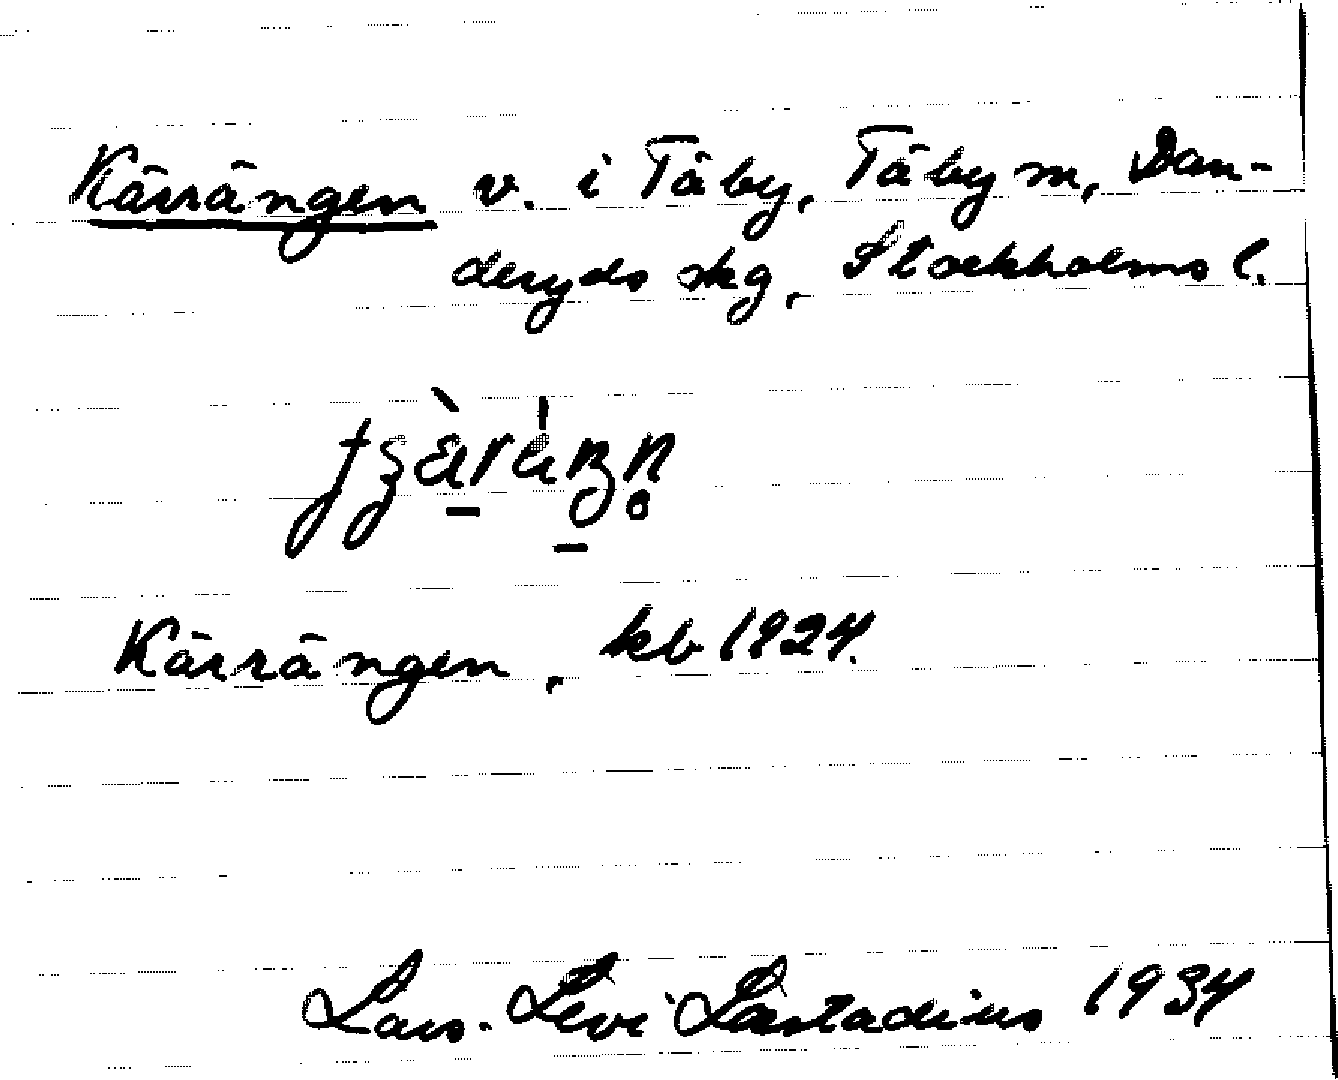 Kärrängen v. i Täby, Täby sn, Dan-
deryds skg, Stockholms l.
Kärrängen, kb 1824.
Lars-Levi Læstadius 1934